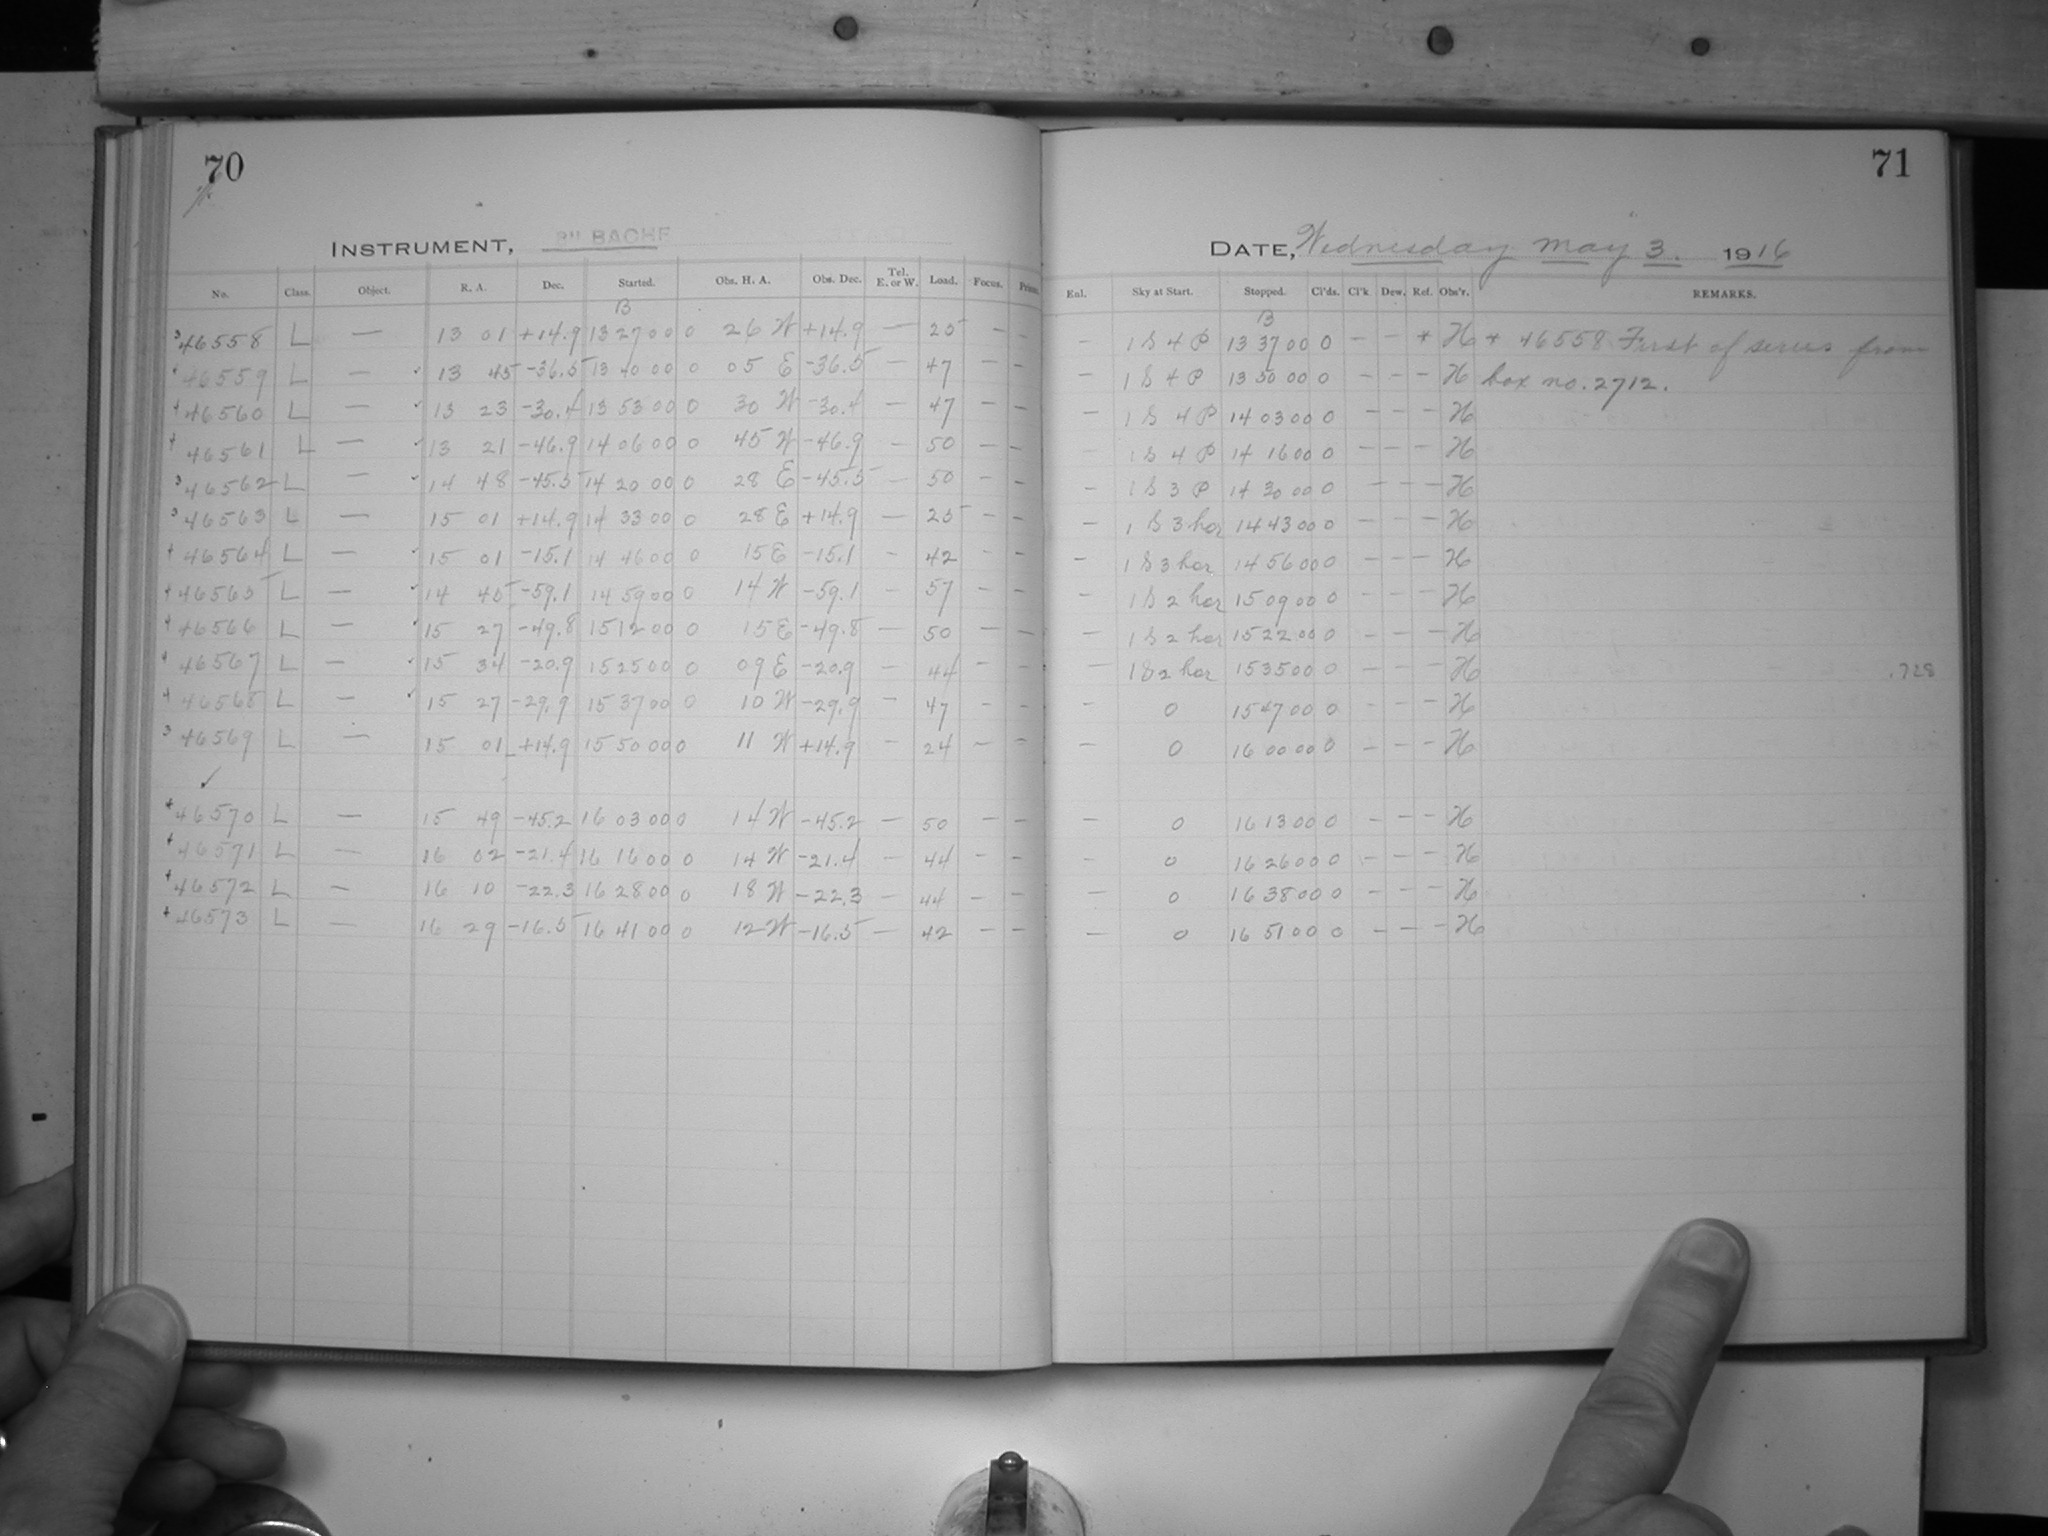 70
INSTRUMENT, 8" BACHE
No. Class. Object. R. A. Dec. Started. Obs. H. A. Obs. Dec. Tel. E. or W. Load. Focus. Prism.
B
3 46558 L — 13 01 +14.9 13 27 00 0 26 W +14.9 — 25 – –
4 46559 L — ✓ 13 45 -36.5 13 40 00 0 05 E -36.5 — 47 – –
4 46560 L — ✓ 13 23 -30.4 13 53 00 0 30 W -30.4 — 47 – –
4 46561 L — ✓ 13 21 -46.9 14 06 00 0 45 W -46.9 — 50 – –
3 46562 L — ✓ 14 48 -45.5 14 20 00 0 28 E -45.5 — 50 – –
3 46563 L — 15 01 +14.9 14 33 00 0 28 E +14.9 — 25 – –
4 46564 L — ✓ 15 01 -15.1 14 46 00 0 15 E -15.1 — 42 – –
4 46565 L — ✓ 14 45 -59.1 14 59 00 0 14 W -59.1 — 57 – –
4 46566 L — ✓ 15 27 -49.8 15 12 00 0 15 E -49.8 — 50 – –
4 46567 L — ✓ 15 34 -20.9 15 25 00 0 09 E -20.9 — 44 – –
4 46568 L — ✓ 15 27 -29.9 15 37 00 0 10 W -29.9 — 47 – –
3 46569 L — 15 01 +14.9 15 50 00 0 11 W +14.9 — 24 – –
✓
4 46570 L — 15 49 -45.2 16 03 00 0 14 W -45.2 — 50 – –
4 46571 L — 16 02 -21.4 16 16 00 0 14 W -21.4 — 44 – –
4 46572 L — 16 10 -22.3 16 28 00 0 18 W -22.3 — 44 – –
4 46573 L — 16 29 -16.5 16 41 00 0 12 W -16.5 — 42 – –
71
DATE, Wednesday May 3. 1916
Enl. Sky at Start. Stopped. Cl'ds. Cl'k Dew. Ref. Obs'r. REMARKS.
B
– 1 S 4 P 13 37 00 0 – – * H * 46558 First of series from
– 1 S 4 P 13 50 00 0 – – – H box no. 2712.
– 1 S 4 P 14 03 00 0 – – – H
– 1 S 4 P 14 16 00 0 – – – H
– 1 S 3 P 14 30 00 0 – – – H
– 1 S 3 hor 14 43 00 0 – – – H
– 1 S 3 hor 14 56 00 0 – – – H
– 1 S 2 hor 15 09 00 0 – – – H
– 1 S 2 hor 15 22 00 0 – – – H
– 1 S 2 hor 15 35 00 0 – – – H .728
– 0 15 47 00 0 – – – H
– 0 16 00 00 0 – – – H
– 0 16 13 00 0 – – – H
– 0 16 26 00 0 – – – H
– 0 16 38 00 0 – – – H
– 0 16 51 00 0 – – – H